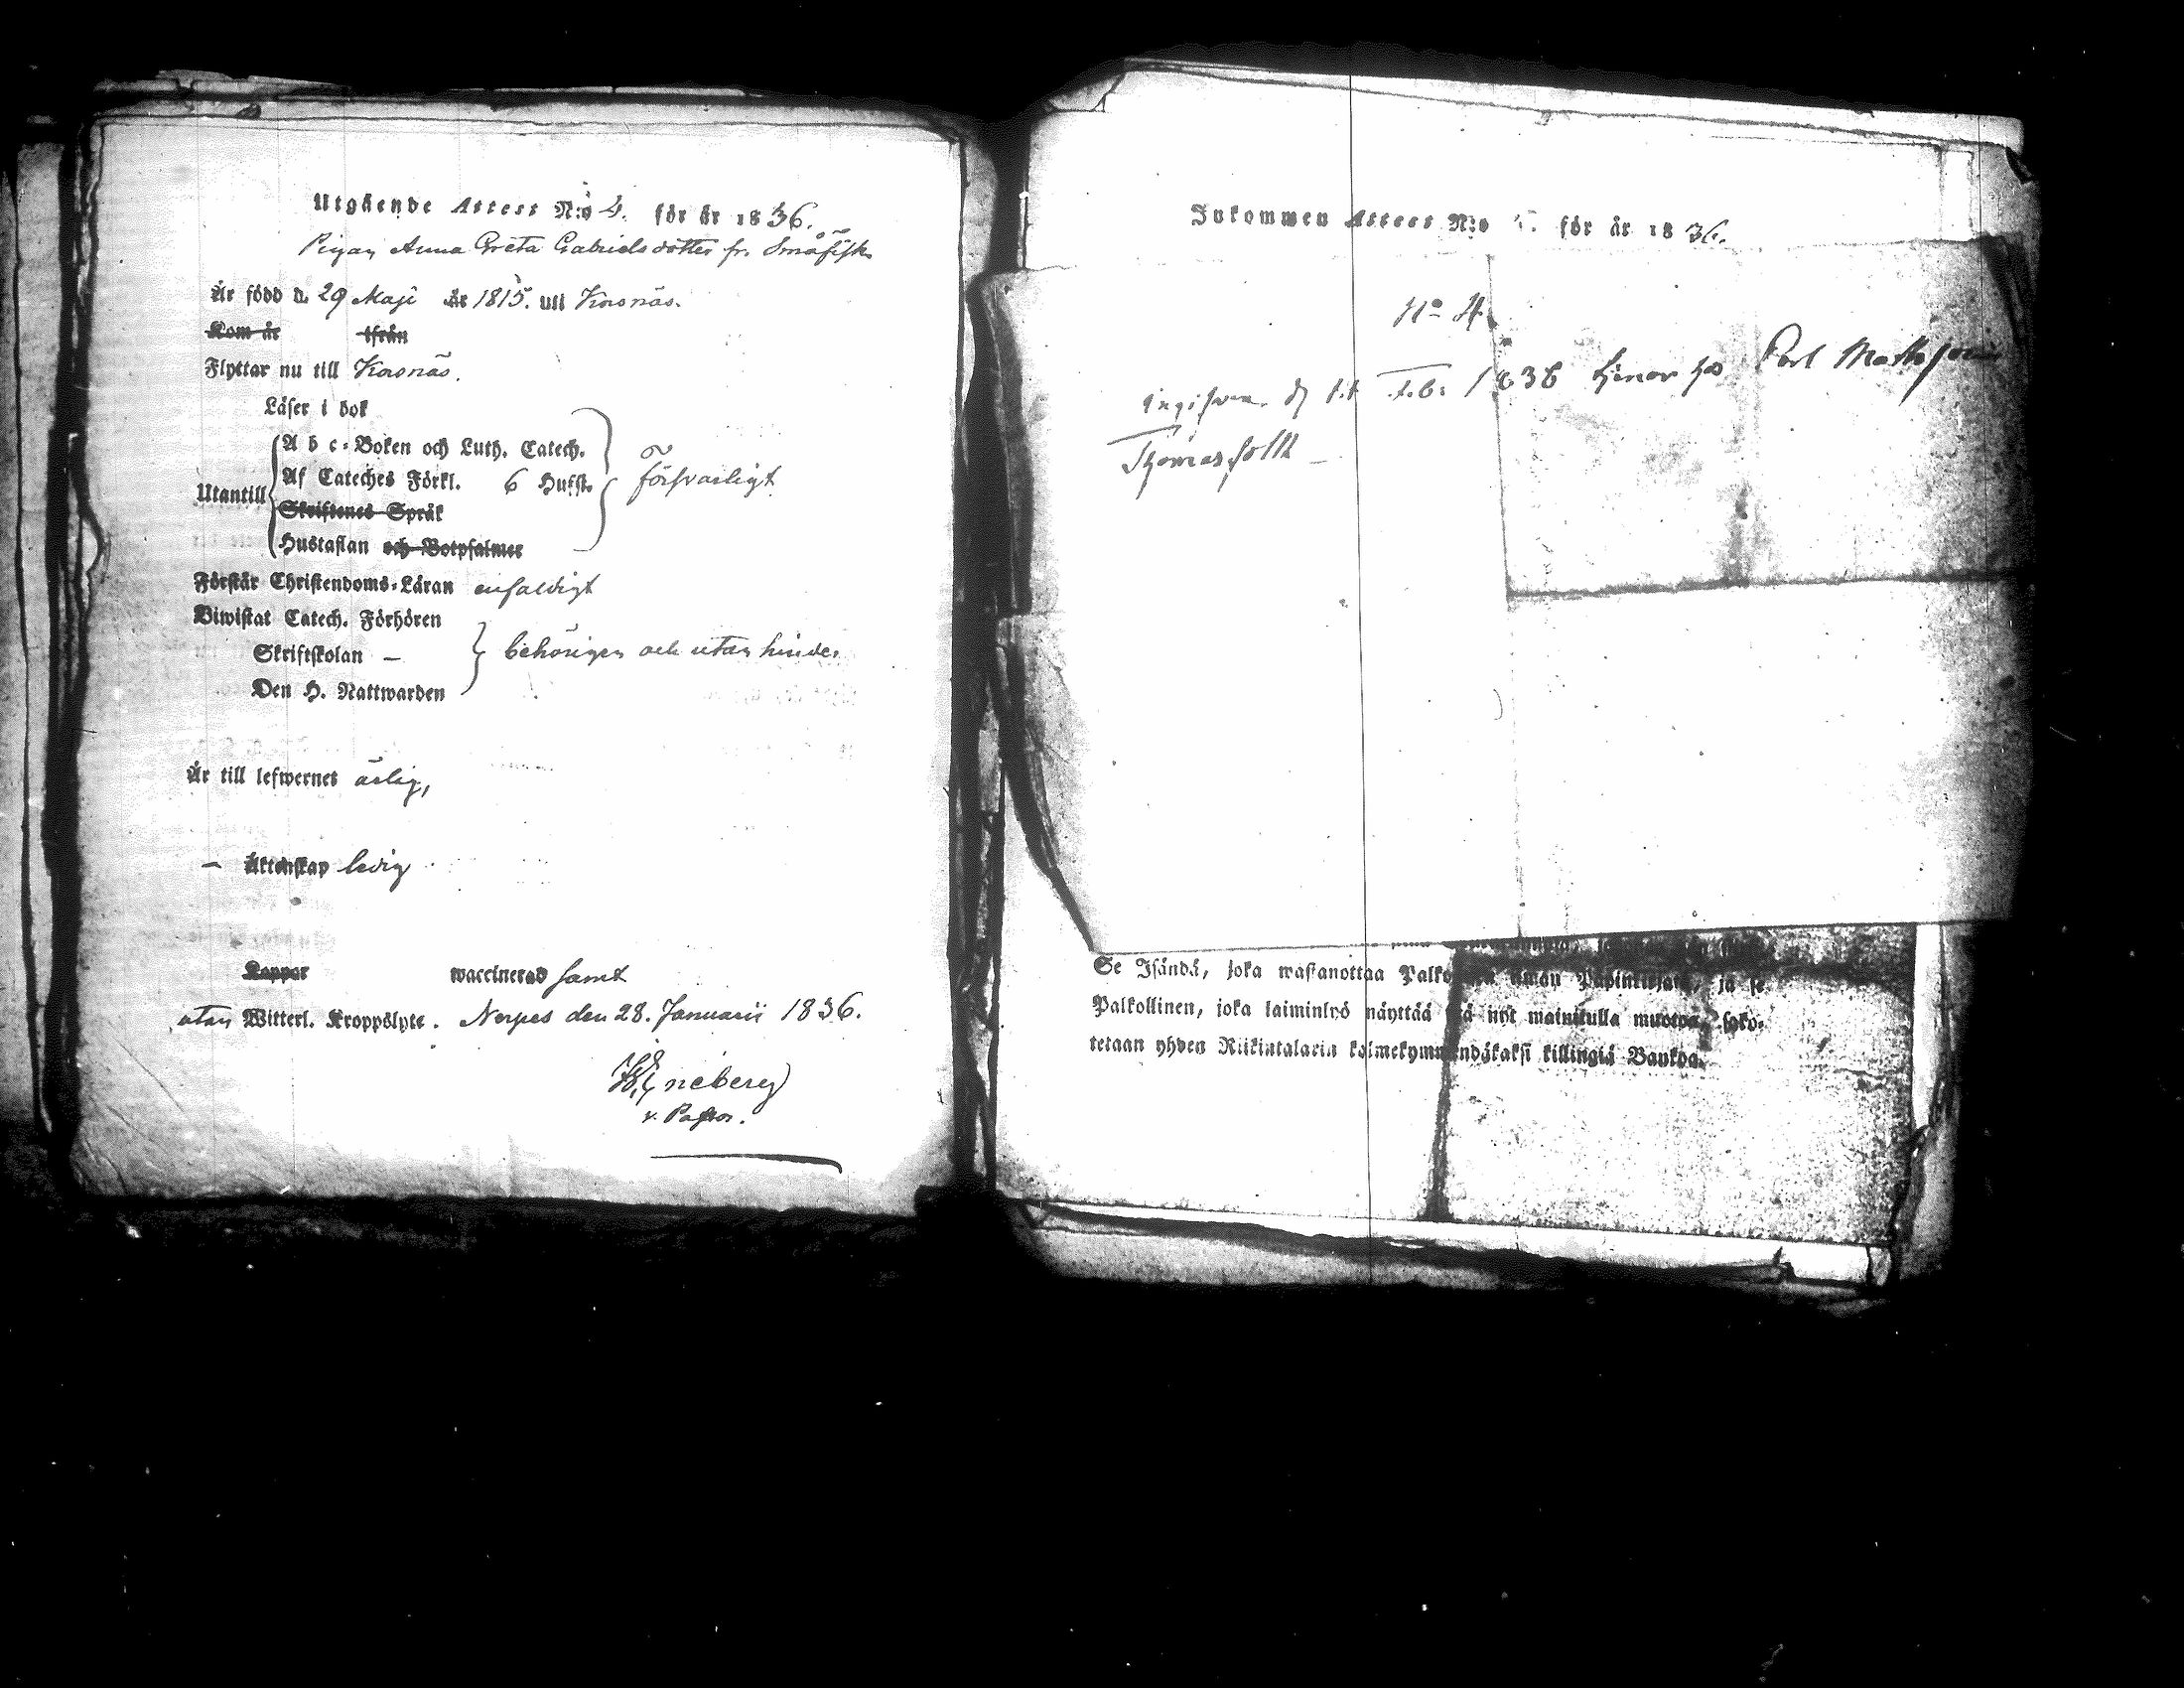 Utgående Attest N:o 4. för år 1836.
Pigan Anna Greta Gabrielsdotter fr. Småfisk
Är född d. 29 Maji år 1815. uti Korsnäs.
Kom år ifrån
Flyttar nu till Korsnäs.
Läser i bok
A b c-Boken och Luth. Catech.
Af Cateches Förkl. 6 Hufst. försvarligt
Utantill
Skriftenes Språk
Hustaflan och Botpsalmer
Förstår Christendoms-Läran enfaldigt
Biwistat Catech. Förhören
Skriftskolan – behörigen och utan hinder
Den H. Nattwarden
Är till lefwernet ärlig,
– Äktenskap ledig
Koppor waccinerad samt
utan Witterl. Kroppslyte. Nerpes den 28. Januarii 1836.
neberg
v. Pastor.
Inkommen Attest N:o för år 1836.
No 4.
d 1836 tjenar hos Carl Mattsson
Thomasfolk –
Se Isändä, joka wastanottaa ilman Papinkirjata, ja se
Palkollinen, joka laiminlyö näyttää sitä nyt mainitulla muotoa, syko-
tetaan yhden Riikintalarin kolmekymmendäkaksi killingiä Bankoa.